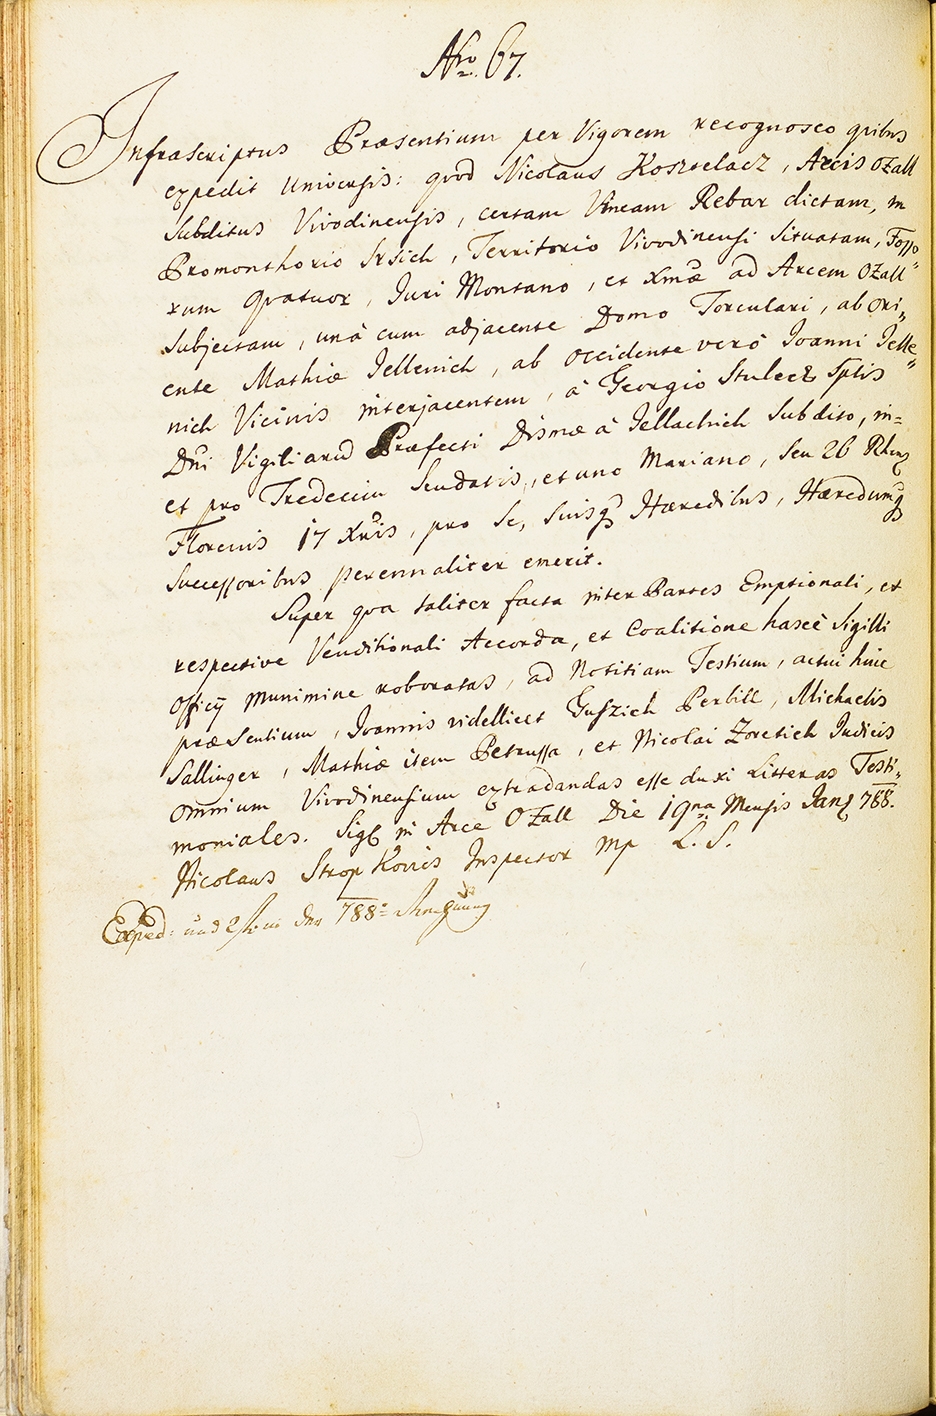 Nro. 67.
Infrascriptus Præsentium per Vigorem recognosco quibus
expedit universis: quod Nicolaus Kosztelacz, Arcis Ozall
Subditus Vivodinensis, certam Vineam Rebar dictam, in
Promonthorio Vrsich, Territorio Vivodinensi Situatam, Fosso„
rum Quatuor, Juri Montano, et Xmæ ad Arcem Ozall
Subjectam, unà cum adjacente Domo Torculari, ab Ori„
ente Mathiæ Jellenich, ab occidente verò Joanni Jelle„
nich Vicinis interjacentem, à Georgio Stulecz Sptis
Dni Vigiliarum Præfecti Dismæ à Jellachich Subdito, in=
et pro Tredecim Scudatis, et uno Mariano, seu 26 Rhens
Florenis 17 Xris, pro Se, Suisq Hæredibus, Hæredumq
Successoribus perennaliter emerit.
Super qua taliter facta inter Partes Emptionali, et
respective Venditionali Accorda, et Coalitione hascè Sigilli
Officij munimine roboratas, ad Notitiam Testium, actui huic
præsentium, Joannis videllicet Guszich Perbill, Michaelis
Sallinger, Mathiæ item Petrussa, et Nicolai Zoretich Judicis
omnium Vivodinensium extradandas esse duxi Litteras Testi„
moniales. Sigl in Arce Ozall Die 19na Mensis Jan 788.
Nicolaus Stropkovics Inspector mp L. S.
Exped: und 2 in der 788